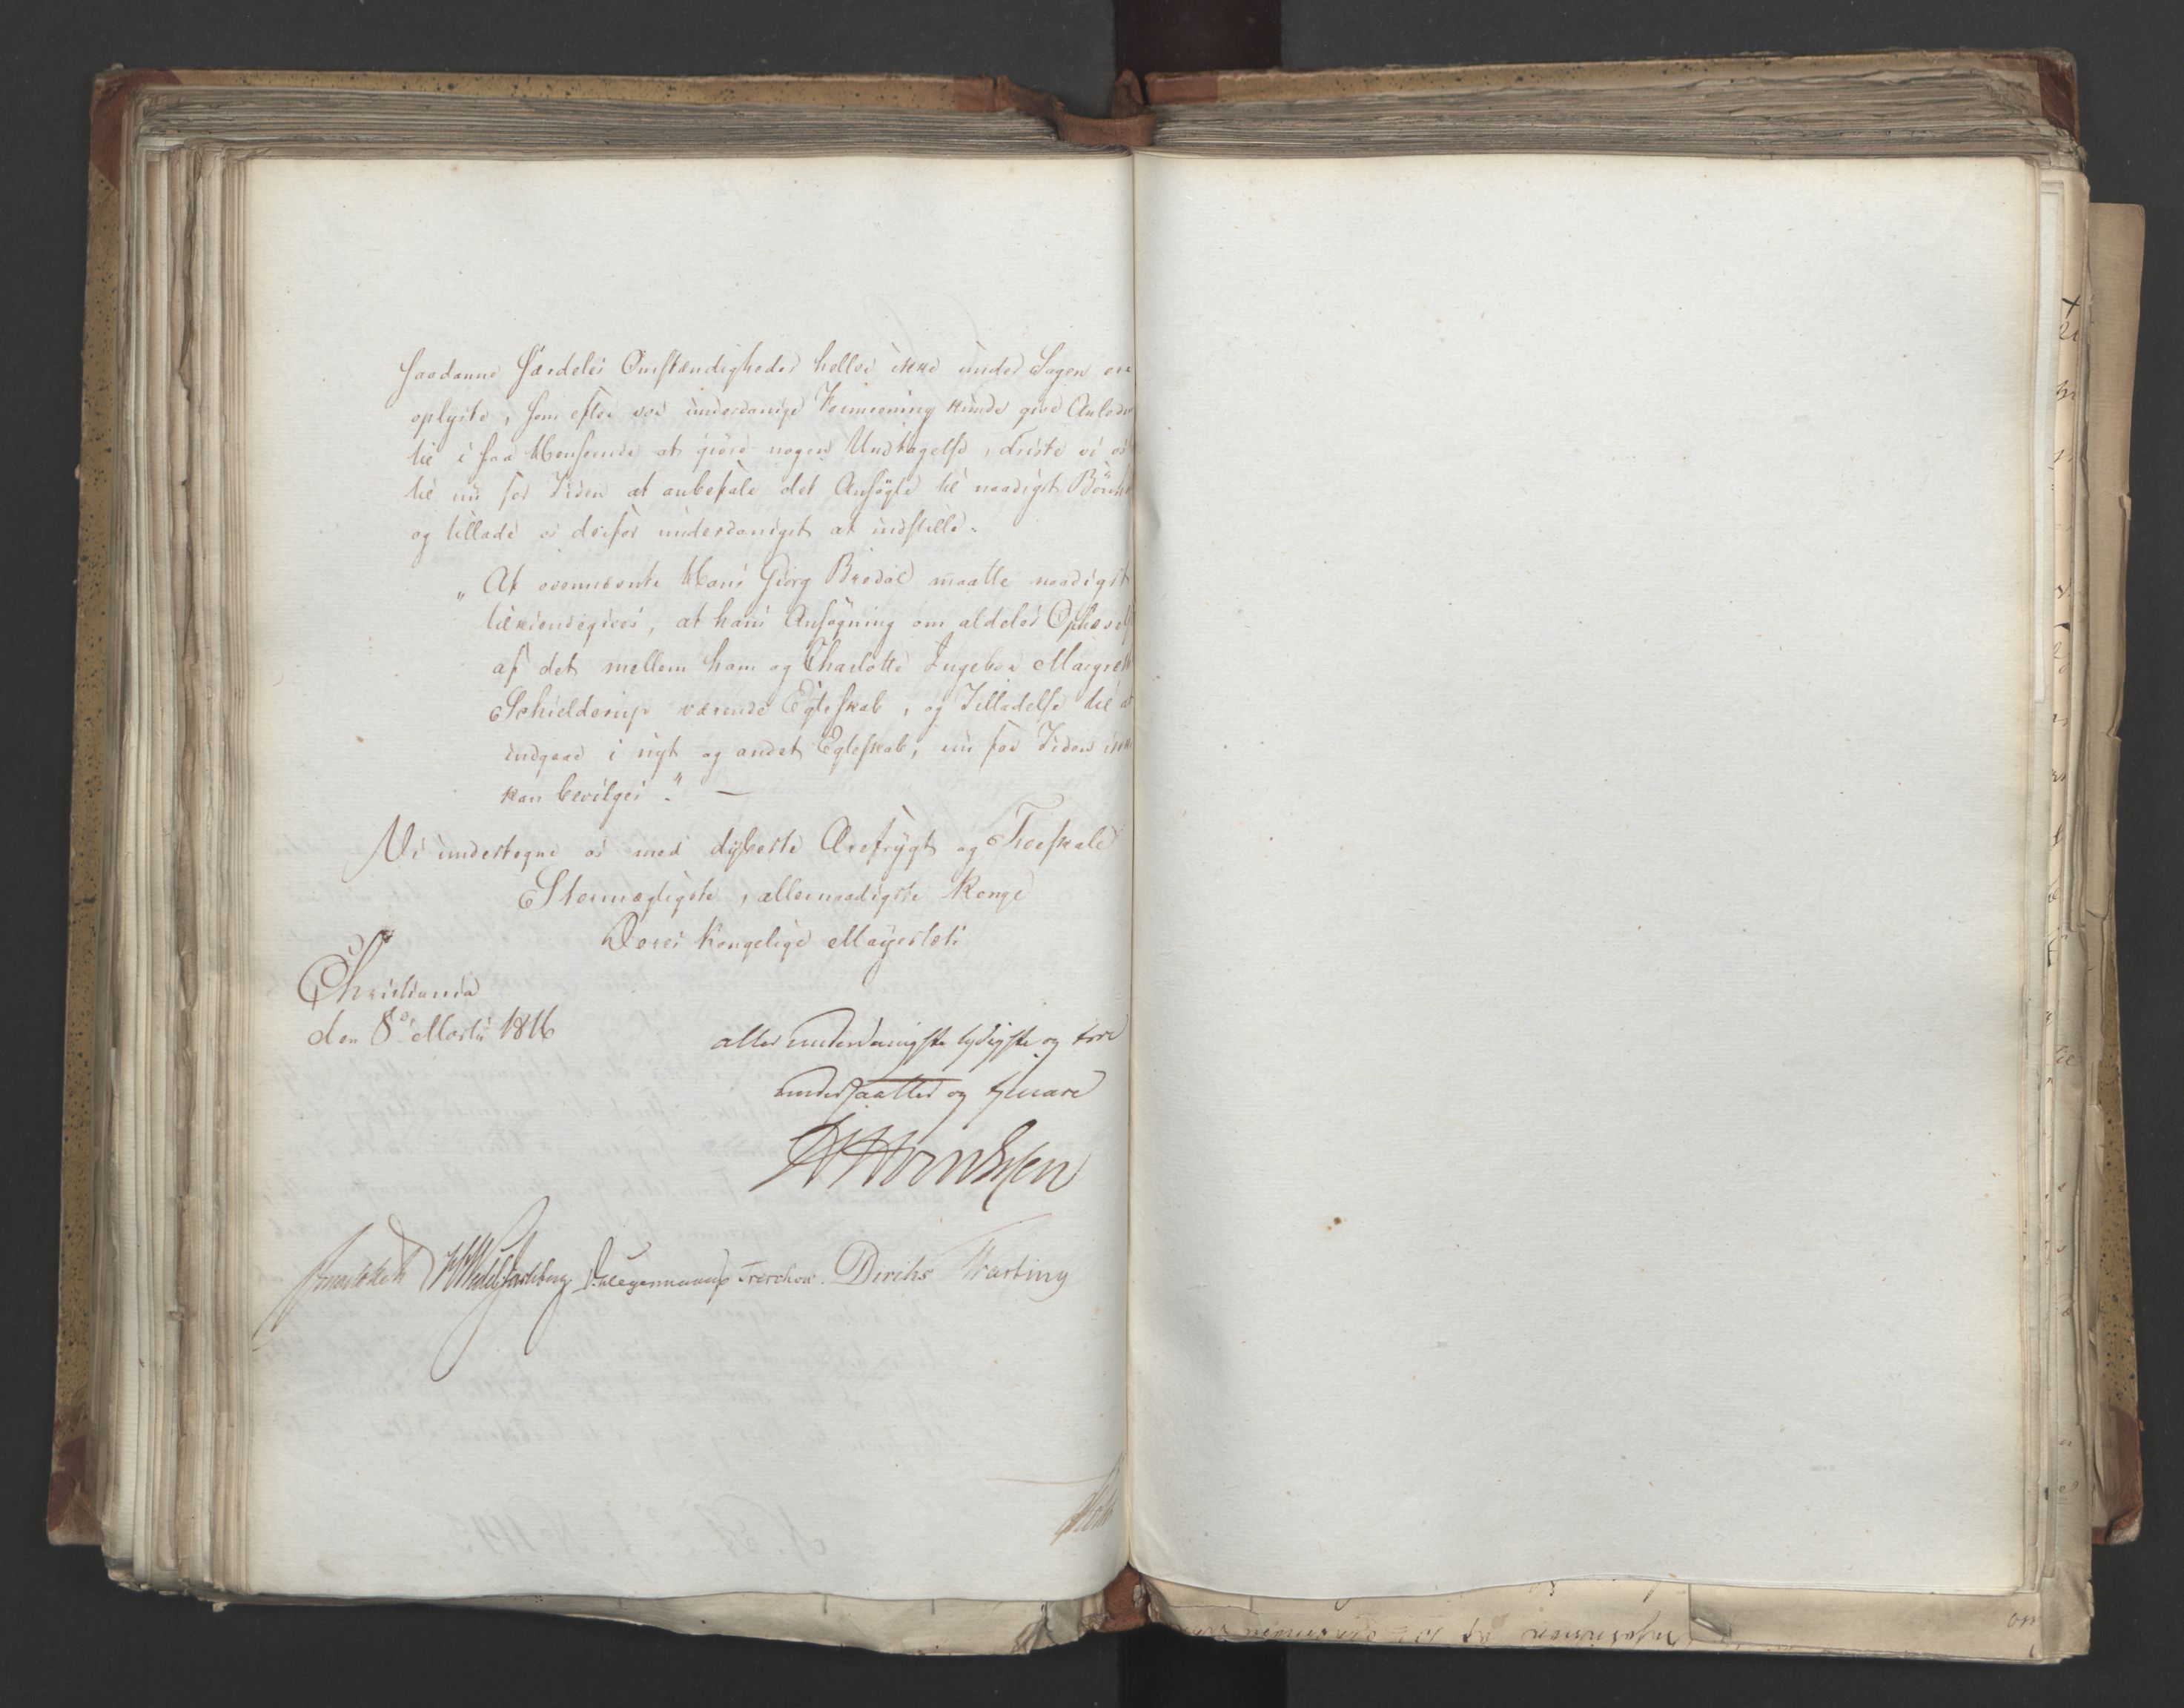 saadanne særdeles Omstændigheder heller ikke under Sagen ere
oplyste, som efter vor underdanige Formeening kunde give Anledn
til i saa Henseende at giøre nogen Undtagelse, driste vi os
til nu for Tiden at anbefale det Ansøgte til naadigst Bønhø
og tillade os derfor underdanigst at indstille:
"At ovennævnte Hans Giørg Bredal maatte naadigst
tilkiendegives, at hans Ansøgning om aldeles Ophævels
af det mellem ham og Charlotte Ingebor Margreth
Schielderup værende Egteskab, og Tilladelse til at
indgaae i nyt og andet Egteskab, nu for Tiden ikke
kan bevilges." —
Vi undertegne os med dybeste Ærefrygt og Troeskab
Stormægtigste, allernaadigste Konge
Deres Kongelige Mayestæts
Christiania
den 8de Martii 1816
allerunderdanigste lydigste og troe
undersaatter og tjenere
Sommerhielm Wedel Jarlsberg Krogh Treschow. Diriks Hasting